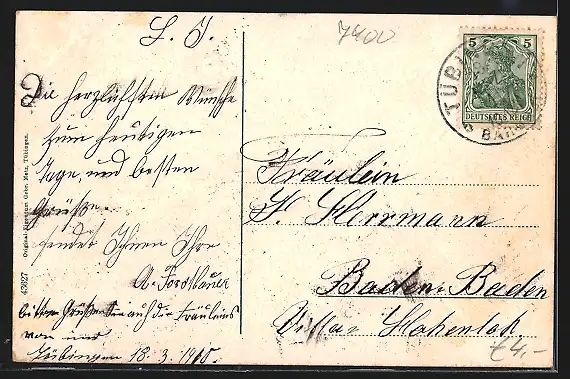 L. F.
7400
Die herzlichsten Wünsche
zum heutigen
Tage, und besten
Grüße.
sendet Ihnen Ihr
A. Forstbauer
bitte Grüßen Sie auch die Fräuleins
von mir
Tübingen 18. 3. 1910.
43627 Original-Eigentum Gebr. Metz, Tübingen.
5 5
DEUTSCHES REICH
TÜBI
BAH
Fräulein
H. Herrmann
Baden-Baden
Villa
€4,-